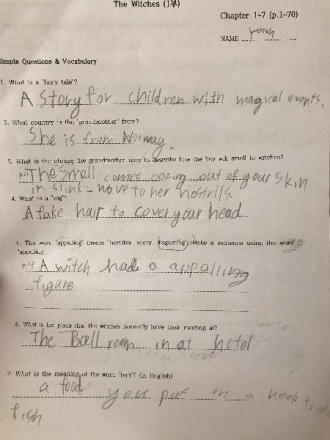 The Witches (1부)
Chapter 1-7 (p.1-70)
NAME
Simple Questions & Vocabulary
1. What is a 'fairy tale'?
A Story for children with magical events.
2. What country is the 'grandmother' from?
She is from Norway.
3. What is the phrase the grandmother uses to describe how the boy will smell to witches?
The smell comes oozing out of your skin
in stink-wave to her nostrils.
4. What is a "wig"?
A fake hair to cover your head.
5. The word 'appalling' means 'horrible, scary, Make a sentence using the word
'appalling'.
A witch had a appalling
figure
6. What is the place that the witches normally have their meeting at?
The Ball room in at hotel
7. What is the meaning of the word 'bait'? (in English)
a food you put on a hook to
fish